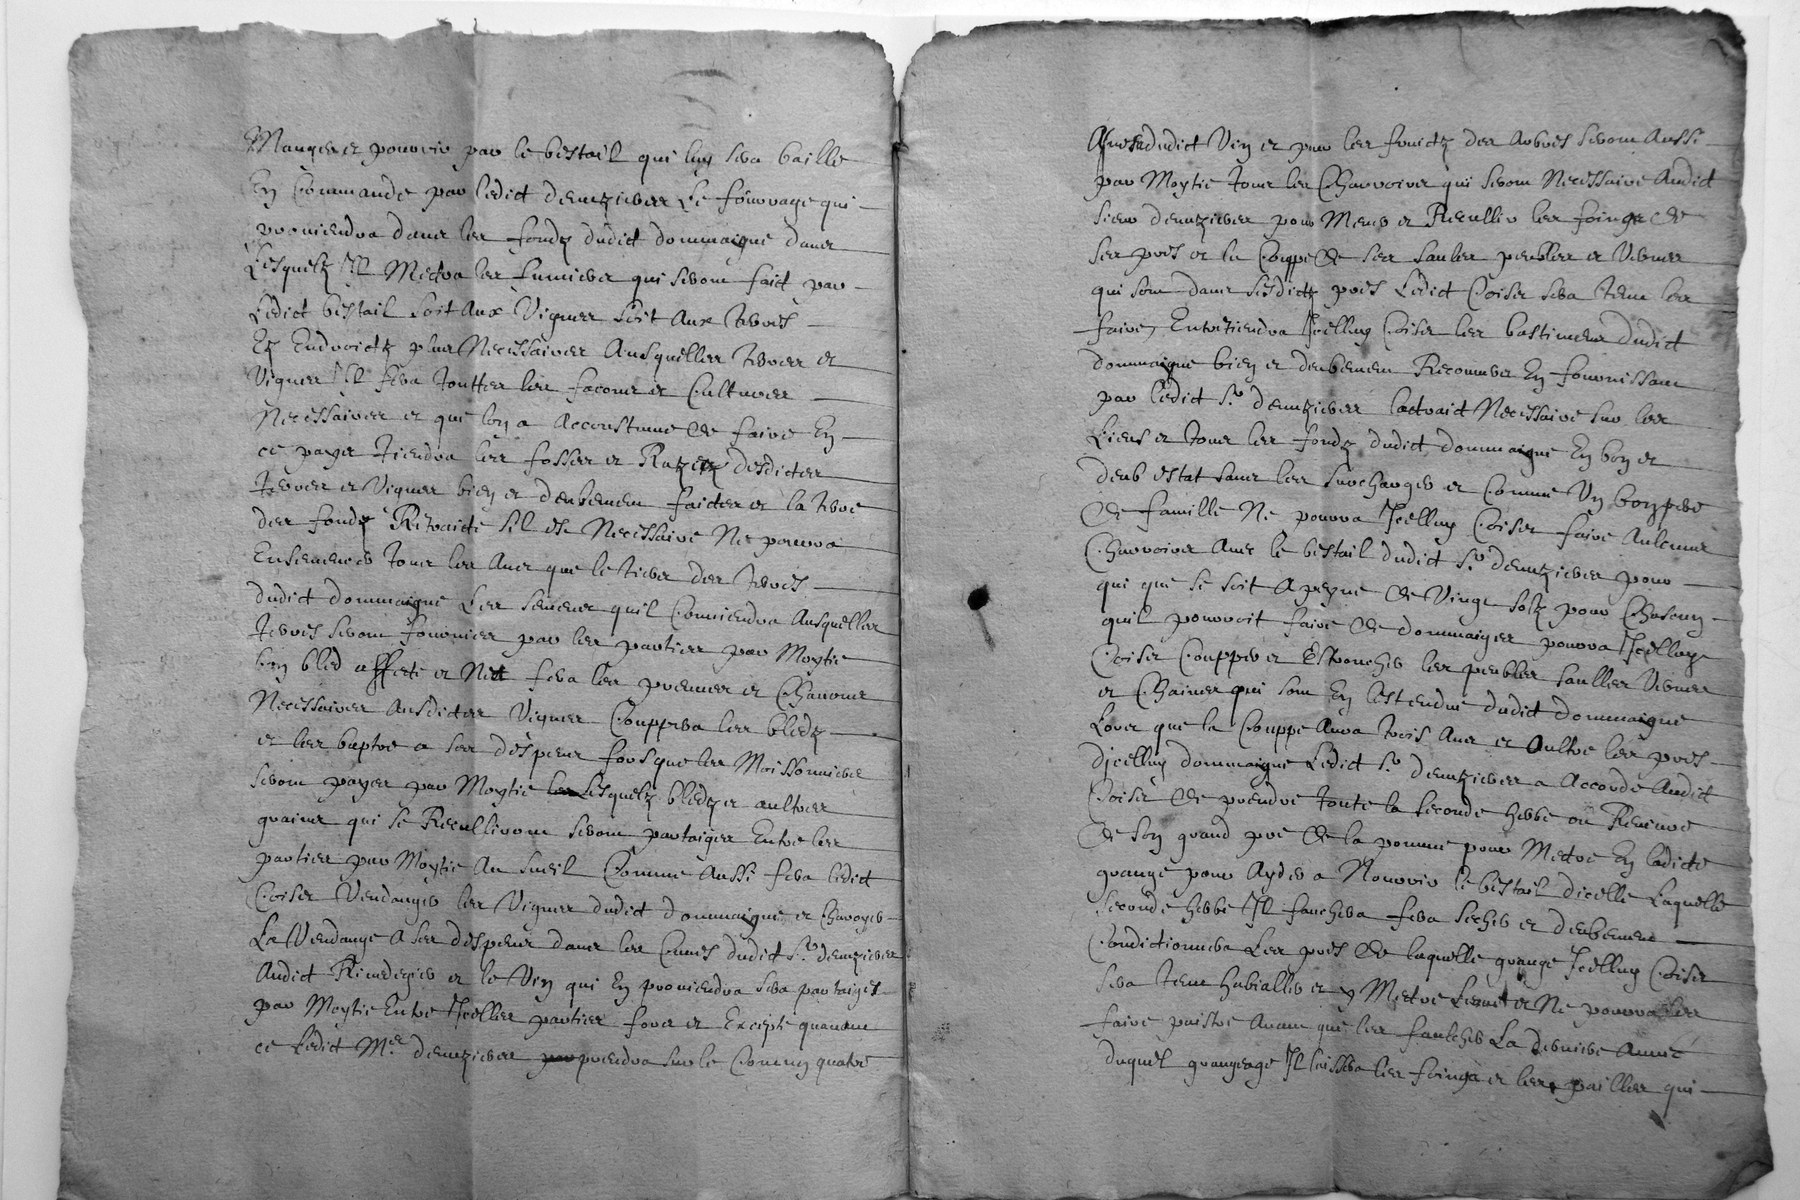 Manger et pourrir par le bestail qui luy sera baille
En Commande par ledict demezieres Le fourrage qui
proviendra dans les fondz dudict dommaigne dans
Lesquelz Il Mettra les fumiers qui seront faict par
Ledict bestail soit Aux Vignes soit Aux terres
Ez Endroictz plus Necessaires Ausquelles terres et
Vignes Il fera touttes les facons et Cultures
Necessaires et que lon a Accoustume de faire En
ce payes tiendra les fosses et Razes desdictes
terres et Vignes bien et deubement faictes et la terre
des fondz Retraicte sil est Necessaire Ne pourra
Ensemencer tous les Ans que le tiers des terres
dudict dommaigne Les semens quil Conviendra Ausquelles
terres seront fournies par les parties par Moytie
bon bled affecte et Net fera les provins et Chanons
Necessaires Ausdictes Vignes Couppera les bledz
et les baptre a ses despens fors que les Moissonniers
seront payes par Moytie Lesquelz bledz et aultres
grains qui se Recullirons seront partaiges Entre les
parties par Moytie Au sueil Comme Aussi fera ledict
Coiser Vendanger les Vignes dudict dommaigne et Charoyer
La Vendange A ses despens dans les Cuves dudict Sr. demezieres
Audict et le Vin qui En proviendra sera partaiges
par Moytie Entre Icelles parties fors et Excepte quavant
ce Ledict Mre demezieres prendra sur le Commun quatre
Asnes dudict Vin et pour les fruictz des Arbres seront Aussi
par Moytie tous les Charroires qui seront Necessaire Audict
sieur demezieres pour Mener et Recullir les foings de
ses pres et la Couppe de ses saules peubles et Vernes
qui sont dans sesdictz pres Ledict Coiser sera tenu les
faire, Entretiendra Icelluy Coiser les bastimens dudict
dommaigne bien et deubement Recouvers En fournissant
par ledict Sr. demezieres lactraict Necessaire sur les
Lieus et tous les fondz dudict dommaigne En bon et
deub estat sans les surcharger et Comme Un bon pere
de famille Ne pourra Icelluy Coiser faire Aulcuns
Charroires Avec le bestail dudict Sr. demezieres pour
qui que se soit A peyne de Vingt solz pour Chascung
quil pourroit faire de dommaiges pourra Icelluy
Coiser Coupper et Estroncher les peubles saulles Vernes
et Chaines qui sont En lestendue dudict dommaigne
Lors que la Couppe Aura trois Ans et Oultre les pres
dicelluy dommaigne Ledict Sr. demezieres a Accorde Audict
Coiser de prendre toute la seconde herbe ou Revivre
de son grand pre de la pomme pour Mettre En ladicte
grange pour Ayder a Nourrir le bestail dicelle Laquelle
seconde herbe Il fauchera fera secher et deubement
Condictionnera Les pres de laquelle grange Icelluy Coiser
sera tenu habialler et y Mettre Leaue et Ne pourra les
faire paistre Avant que les faulcher La derniere Annee
duquel grangeage Il laissera les foings et les pailles qui